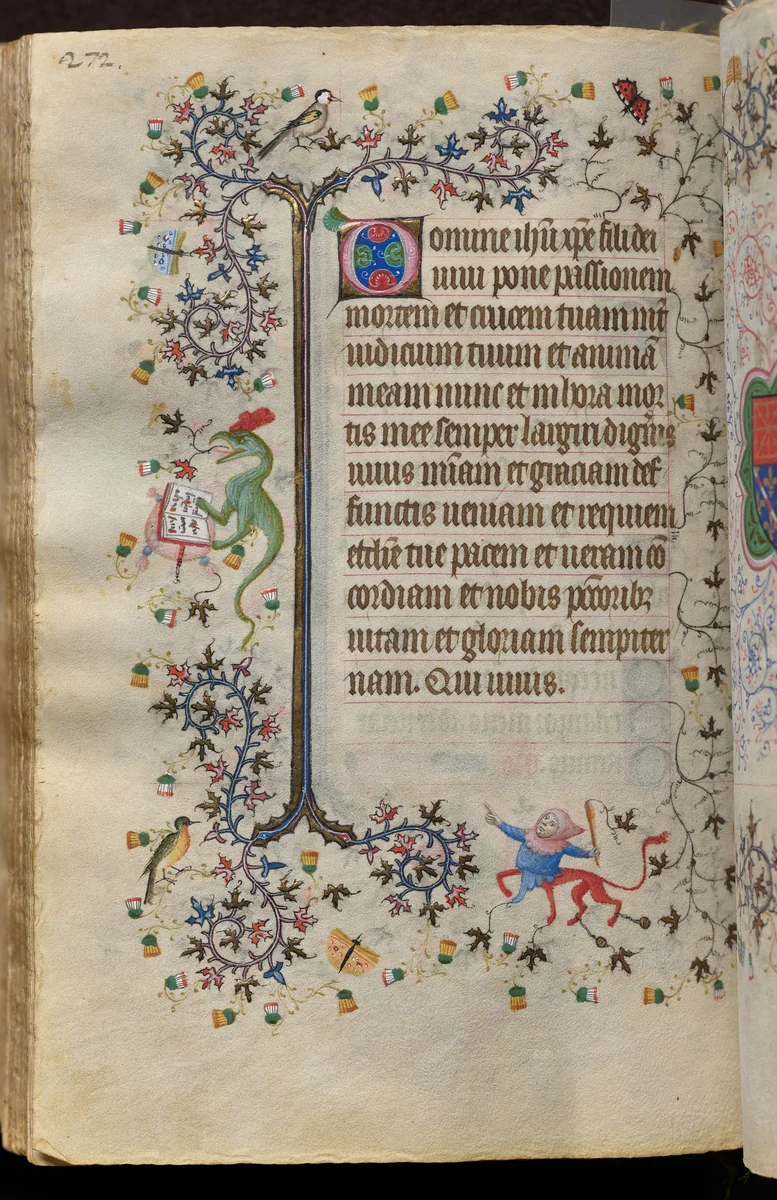 272.
Domine ihu xpe fili dei
uiui pone passionem
mortem et crucem tuam int
iudicium tuum et animā
meam nunc et in hora mor
tis mee semper largiri digneris
uiuis miam et graciam def
functis ueniam et requiem
eccliē tue pacem et ueram cō
cordiam et nobis pccoribz
uitam et gloriam sempiter
nam. Qui uiuis.